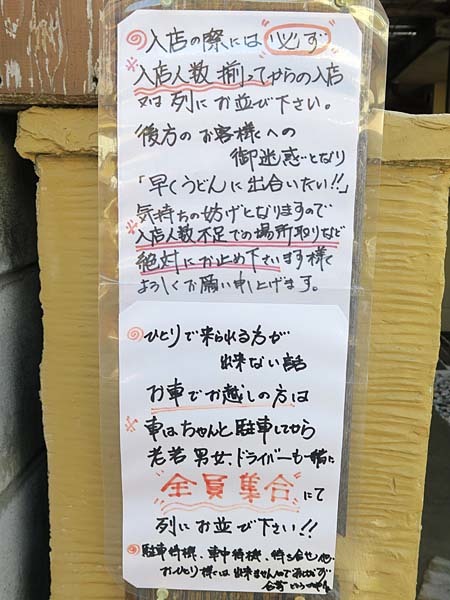 ◎入店の際には必ず
※入店人数揃ってからの入店
又は列にお並び下さい。
後方のお客様への
御迷惑となり
「早くうどんに出合いたい!!」
気持ちの妨げとなりますので
※入店人数不足での場所取りなど
絶対にお止め下さいます様
よろしくお願い申し上げます。
◎ひとりで来られる方が
出来ない話
お車でお越しの方は
※車はちゃんと駐車してから
老若男女、ドライバーも一緒に
全員集合にて
列にお並び下さい!!
◎駐車待機、車中待機、待ち合せ
おひとり様には出来ませんので